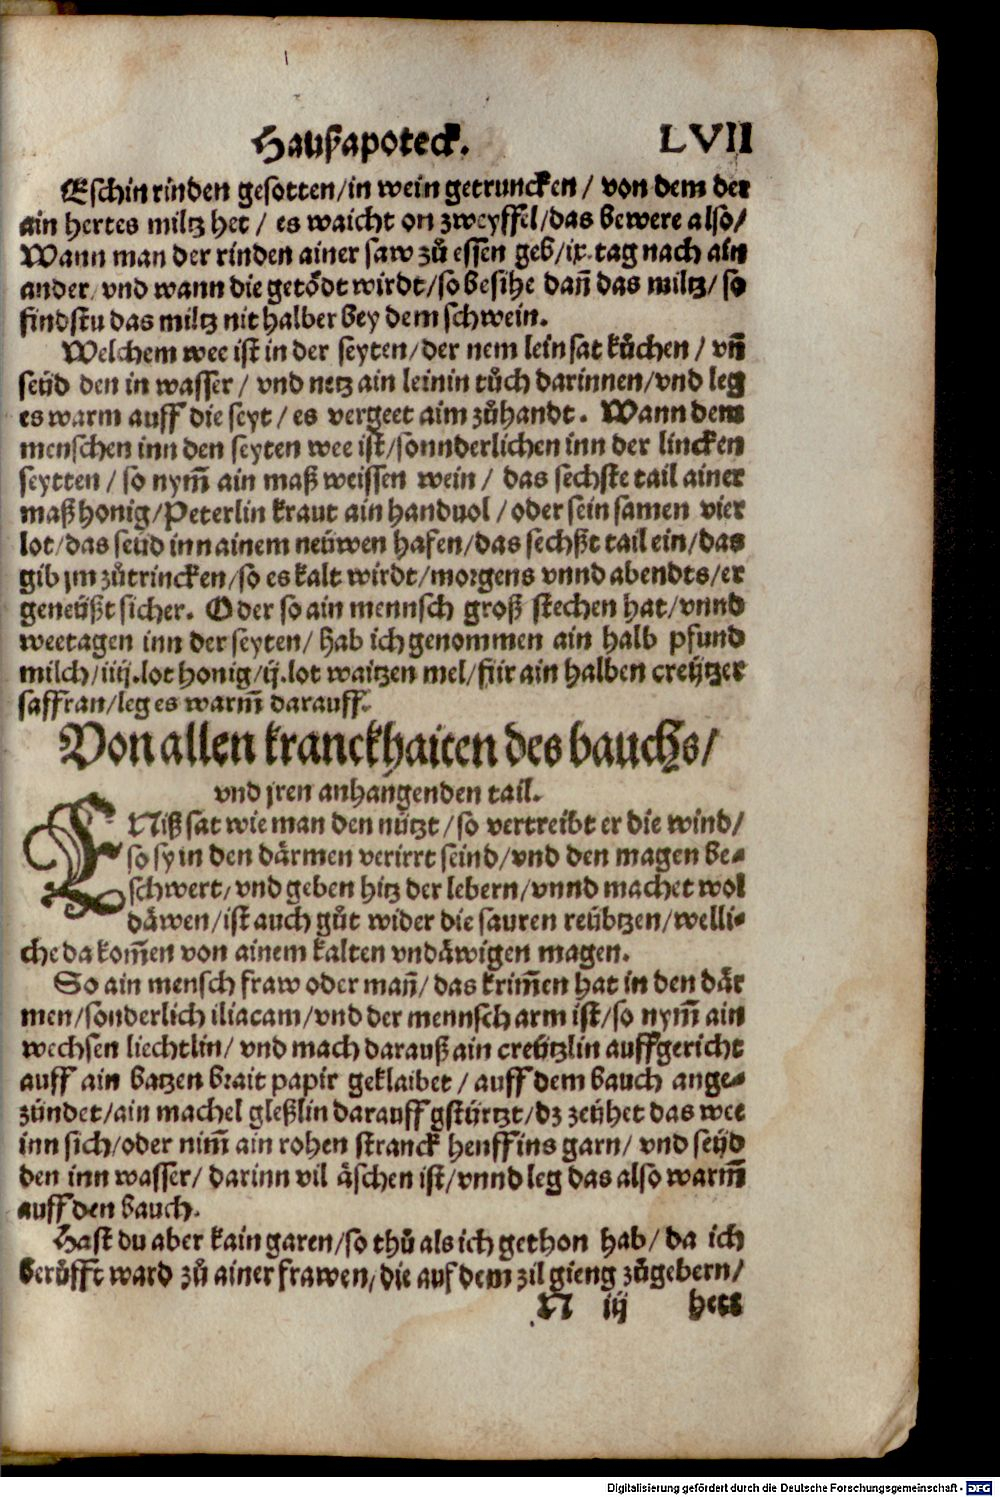 Haußapoteck. LVII
Eschin rinden gesotten/in wein getruncken/ von dem der
ain hertes miltz het/ es waicht on zweyffel/das bewere also/
Wann man der rinden ainer saw zů essen geb/ix.tag nach ain
ander/ vnd wann die getödt wirdt/so besihe dañ das miltz/ so
findstu das miltz nit halber bey dem schwein.
Welchem wee ist in der seyten/der nem leinsat kůchen/ vñ
seüd den in wasser/ vnd netz ain leinin tůch darinnen/vnd leg
es warm auff die seyt/ es vergeet aim zůhandt. Wann dem
menschen inn den seyten wee ist/sonnderlichen inn der lincken
seytten/ so nym̃ ain maß weissen wein/ das sechste tail ainer
maß honig/Peterlin kraut ain handuol/oder sein samen vier
lot/das seüd inn ainem neüwen hafen/das sechßt tail ein/das
gib jm zůtrincken/so es kalt wirdt/morgens vnnd abendts/er
geneüßt sicher. Oder so ain mennsch groß stechen hat/vnnd
weetagen inn der seyten/ hab ich genommen ain halb pfund
milch/iiij.lot honig/ij.lot waitzen mel/für ain halben creützer
saffran/leg es warm̃ darauff.
Von allen kranckhaiten des bauchs/
vnd jren anhangenden tail.
ENiß sat wie man den nützt/so vertreibt er die wind/
so sy in den därmen verirrt seind/vnd den magen be-
schwert/vnd geben hitz der lebern/vnnd machet wol
däwen/ist auch gůt wider die sauren reübtzen/welli-
che da kom̃en von ainem kalten vndäwigen magen.
So ain mensch fraw oder mañ/ das krim̃en hat in den där
men/sonderlich iliacam/vnd der mennsch arm ist/so nym̃ ain
wechsen liechtlin/ vnd mach darauß ain creützlin auffgericht
auff ain batzen brait papir geklaibet/ auff dem bauch ange-
zündet/ain machel gleßlin darauff gstürtzt/dz zeühet das wee
inn sich/oder nim̃ ain rohen stranck henffins garn/ vnd seüd
den inn wasser/ darinn vil äschen ist/vnnd leg das also warm̃
auff den bauch.
Hast du aber kain garen/so thů als ich gethon hab/ da ich
berůfft ward zů ainer frawen/die auf dem zil gieng zůgebern/
N iij hett
Digitalisierung gefördert durch die Deutsche Forschungsgemeinschaft - DFG